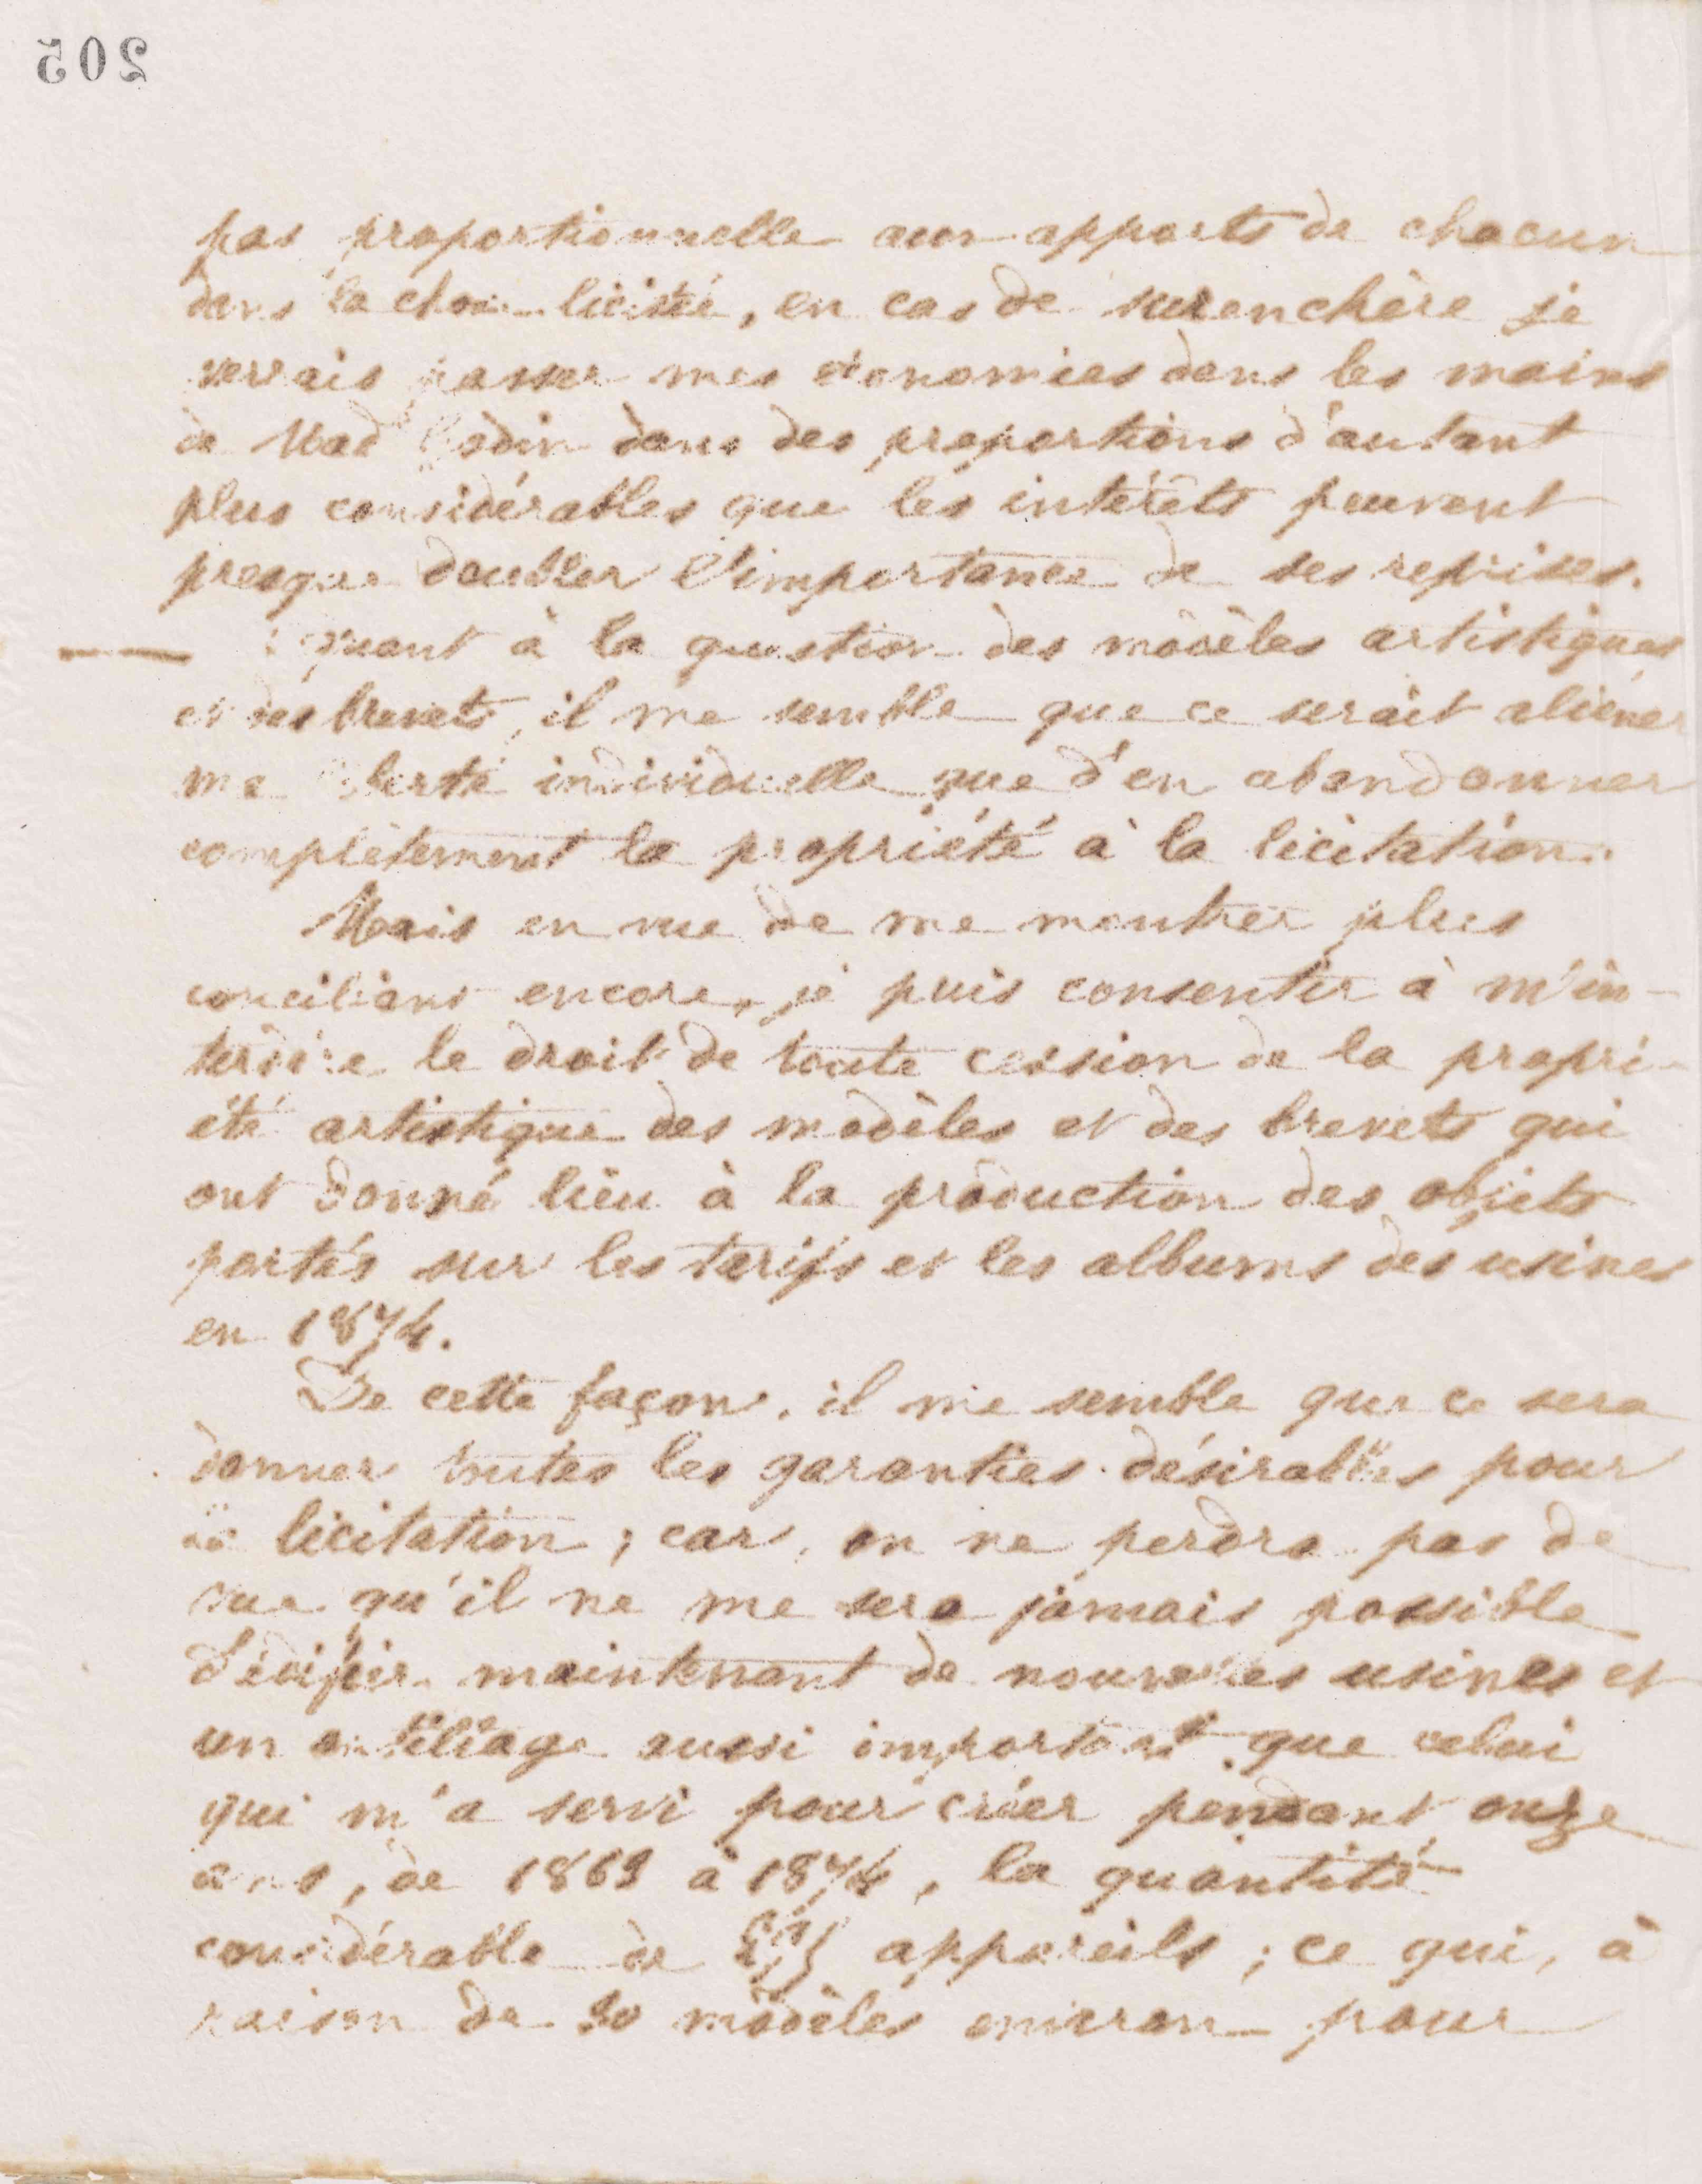 205
pas proportionnelle aux apports de chacun
dans la chose licitée, en cas de surenchère je
verrais passer mes économies dans les mains
de Mad Godin dans des proportions d'autant
plus considérables que les intérêts peuvent
presque doubler l'importance de ses reprises.
Quant à la question des modèles artistiques
et des brevets, il me semble que ce serait aliéner
ma liberté individuelle que d'en abandonner
complètement la propriété à la licitation.
Mais en vue de me montrer plus
conciliant encore, je puis consentir à m'in-
terdire le droit de toute cession de la propri-
été artistique des modèles et des brevets qui
ont donné lieu à la production des objets
portés sur les tarifs et les albums des usines
en 1874.
De cette façon, il me semble que ce sera
donner toutes les garanties désirables pour
la licitation ; car, on ne perdra pas de
vue qu'il ne me sera jamais possible
d'édifier maintenant de nouvelles usines et
un outillage aussi important que celui
qui m'a servi pour créer pendant onze
ans, de 1863 à 1874, la quantité
considérable de appareils ; ce qui, à
raison de modèles environ pour